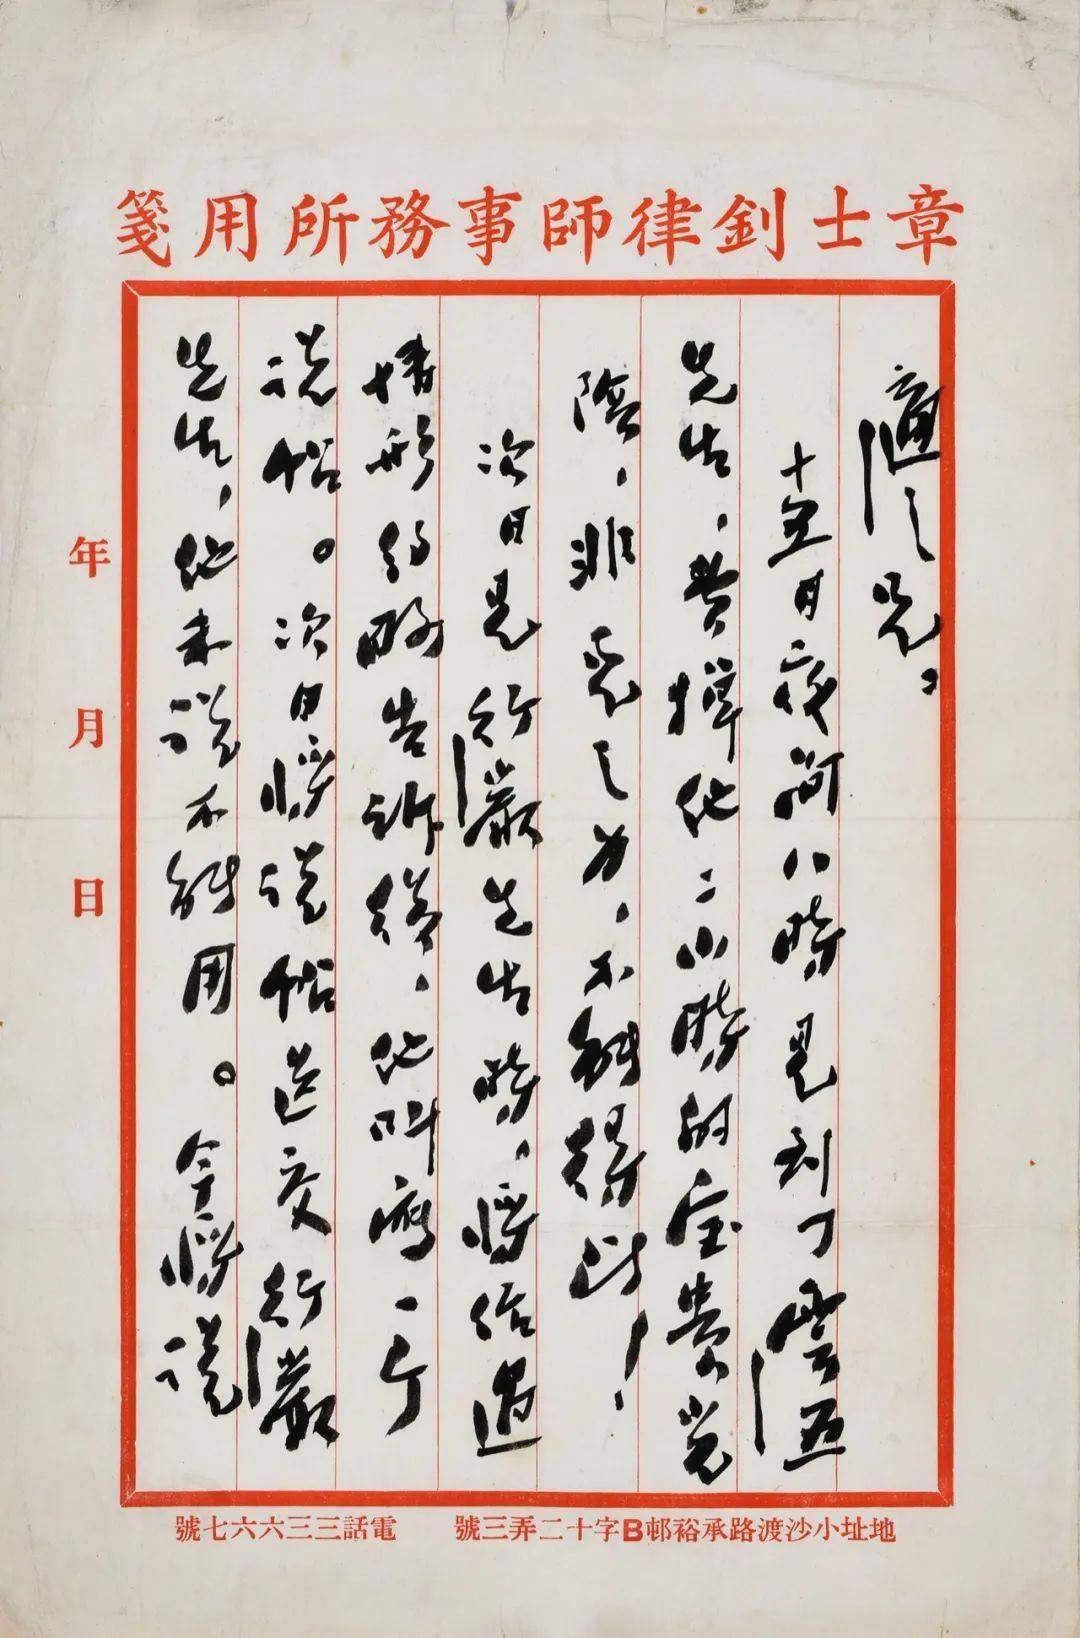 章士釗律師事務所用箋
適之兄。
十五日夜间八時見到了雲五
先生，费掉他二小時的宝贵光
陰，非兄之力，不能得此！
次日見行嚴先生時，將经過
情形约略告訴後，他叫寫一个
说帖。次日將说帖送交行嚴
先生，他未说不能用。今將说
年 月 日
地址小沙渡路承裕邨B字十二弄三號 電話三三六六七號